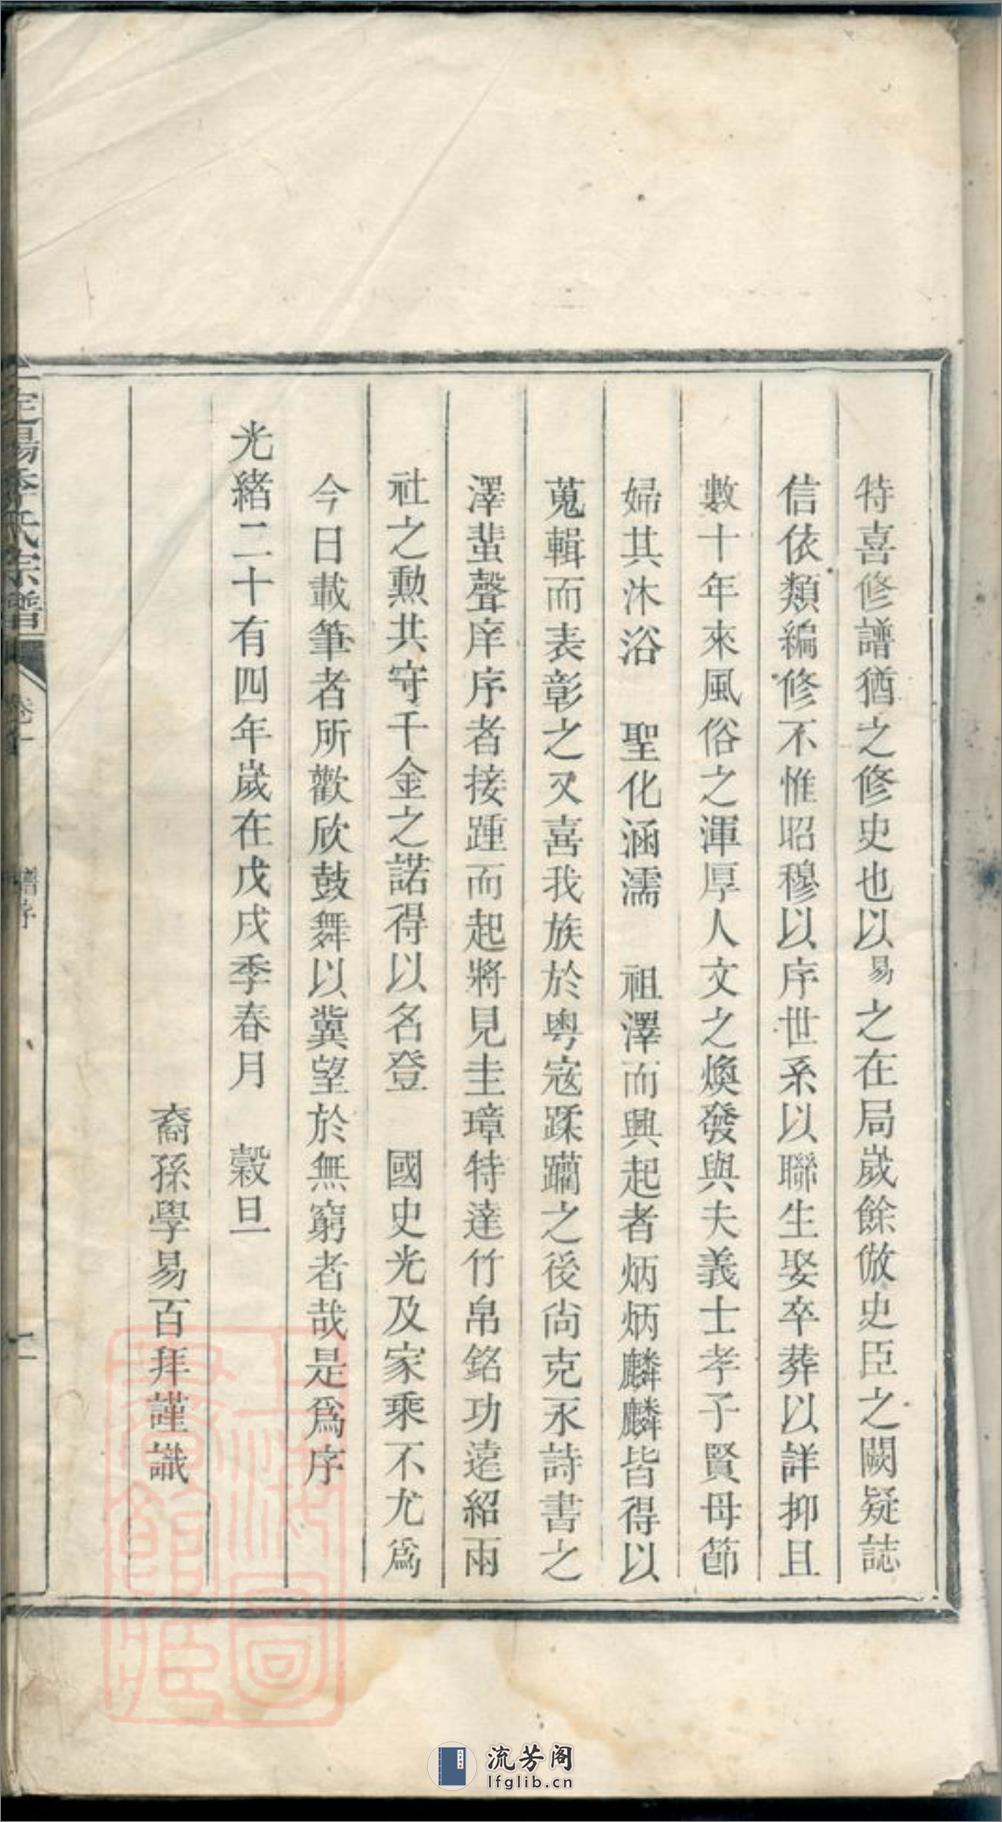 特喜修譜猶之修史也以易之在局嵗餘倣史臣之闕疑誌
信依類編修不惟昭穆以序世系以聯生娶卒葬以詳抑且
數十年來風俗之渾厚人文之煥發與夫義士孝子賢母節
婦其沐浴　聖化涵濡　祖澤而興起者炳炳麟麟皆得以
蒐輯而表彰之又喜我族於粵寇蹂躪之後尙克承詩書之
澤蜚聲庠序者接踵而起將見圭璋特達竹帛銘功遠紹兩
社之勳共守千金之諾得以名登　國史光及家乘不尤爲
今日載筆者所歡欣鼓舞以冀望於無窮者哉是爲序
光緒二十有四年嵗在戊戌季春月　穀旦
裔孫學易百拜謹識
定陽季氏宗譜　譜序
上海圖書館藏
流芳阁
lfglib.cn